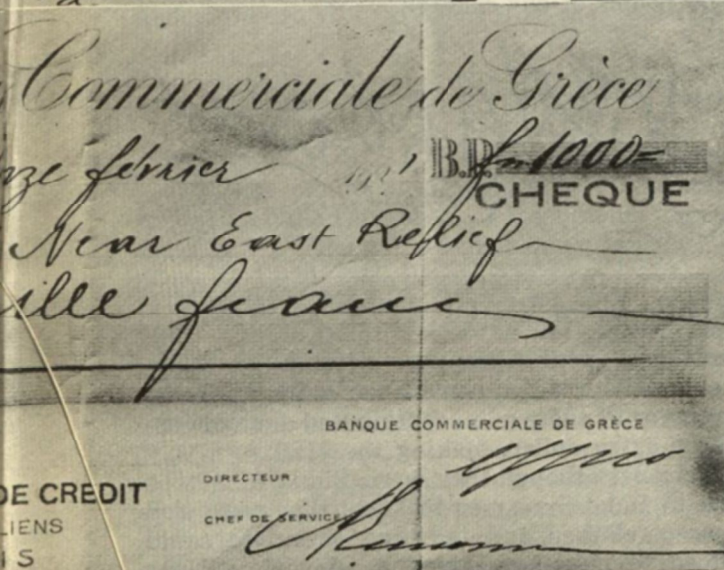 Commerciale de Grèce
nze février B.P. fr 1000=
CHEQUE
Near East Relief
ille francs
BANQUE COMMERCIALE DE GRÈCE
DIRECTEUR
DE CREDIT
CHEF DE SERVICE
LIENS
IS